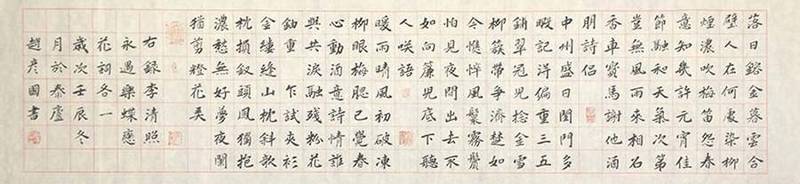 落日鎔金暮雲合
璧人在何處染柳
煙濃吹梅笛怨春
意知幾許元宵佳
節融和天氣次第
豈無風雨來相召
香車寶馬謝他酒
朋詩侶
中州盛日閨門多
暇記得偏重三五
鋪翠冠兒捻金雪
柳簇帶爭濟楚如
今憔悴風鬟霧鬢
怕見夜間出去不
如向簾兒底下聽
人咲語
暖雨晴風初破凍
柳眼梅腮已覺春
心動酒意詩情誰
與共淚融殘粉花
鈿重 乍試夾衫
金縷縫山枕斜欹
枕損釵頭鳳獨抱
濃愁無好夢夜闌
猶剪燈花弄
右錄李清照
永遇樂蝶戀
花詞各一
歲次壬辰冬
月於泰廬
趙彥國書